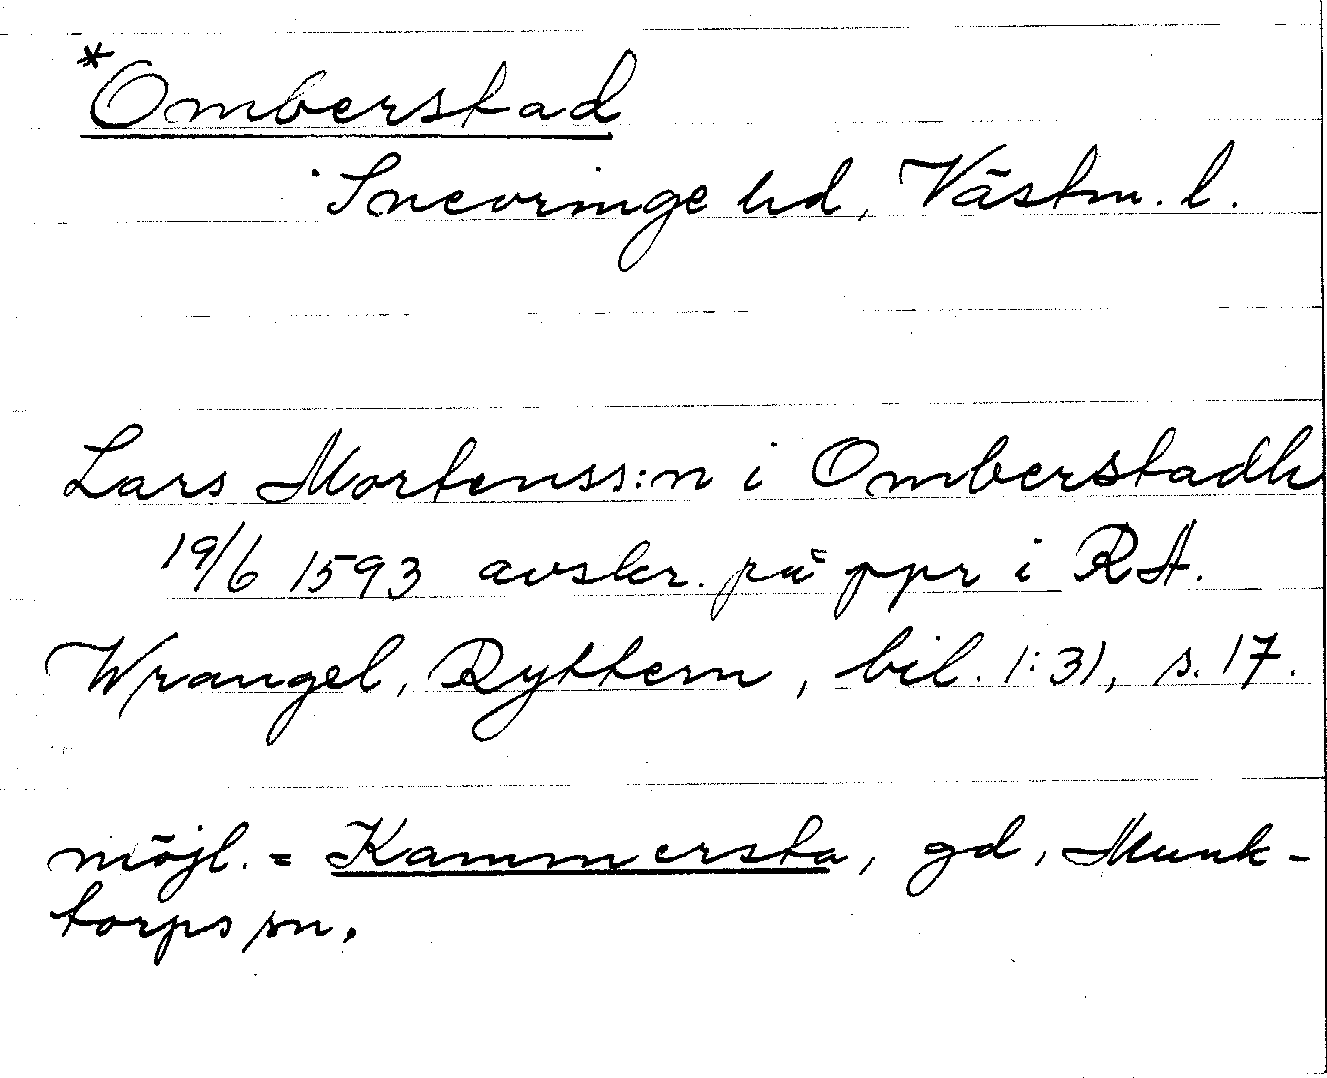 *Omberstad
Snevringe hd, Västm. l.
Lars Mortenss:n i Omberstadh
19/6 1593 avskr. på ppr i RA.
Wrangel, Ryttern, bil. 1:31, s. 17.
möjl. = Kammersta, gd, Munk-
torps sn.